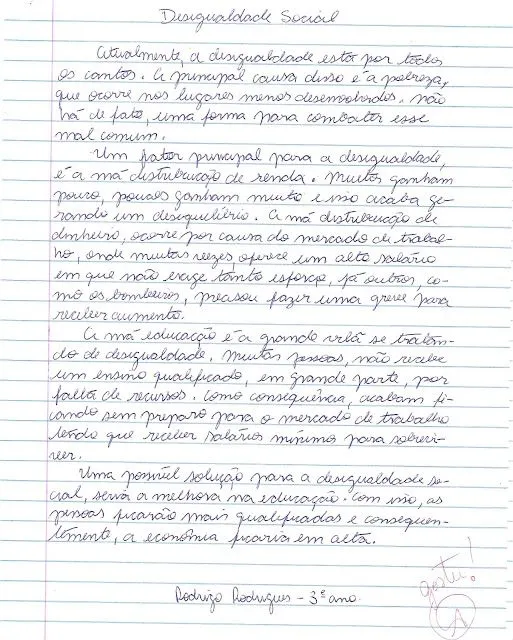 Desigualdade Social
Atualmente, a desigualdade está por todos
os cantos. A principal causa disso é a pobreza,
que ocorre nos lugares menos desenvolvidos. Não
há de fato, uma forma para combater esse
mal comum.
Um fator principal para a desigualdade,
é a má distribuição de renda. Muitos ganham
pouco, poucos ganham muito e isso acaba ge-
rando um desequilíbrio. A má distribuição de
dinheiro, ocorre por causa do mercado de trabal-
ho, onde muitas vezes, oferece um alto salário
em que não exige tanto esforço, já outros, co-
mo os bombeiros, precisou fazer uma greve para
receber aumento.
A má educação é a grande vilã se tratan-
do de desigualdade. Muitas pessoas, não recebe
um ensino qualificado, em grande parte, por
falta de recursos. Como consequência, acabam fi-
cando sem preparo para o mercado de trabalho
tendo que receber salários mínimo para sobrevi-
ver.
Uma possível solução para a desigualdade so-
cial, seria a melhora na educação. Com isso, as
pessoas ficarão mais qualificadas e consequen-
temente, a economia ficaria em alta.
Rodrigo Rodrigues - 3º ano.
gostei!
A